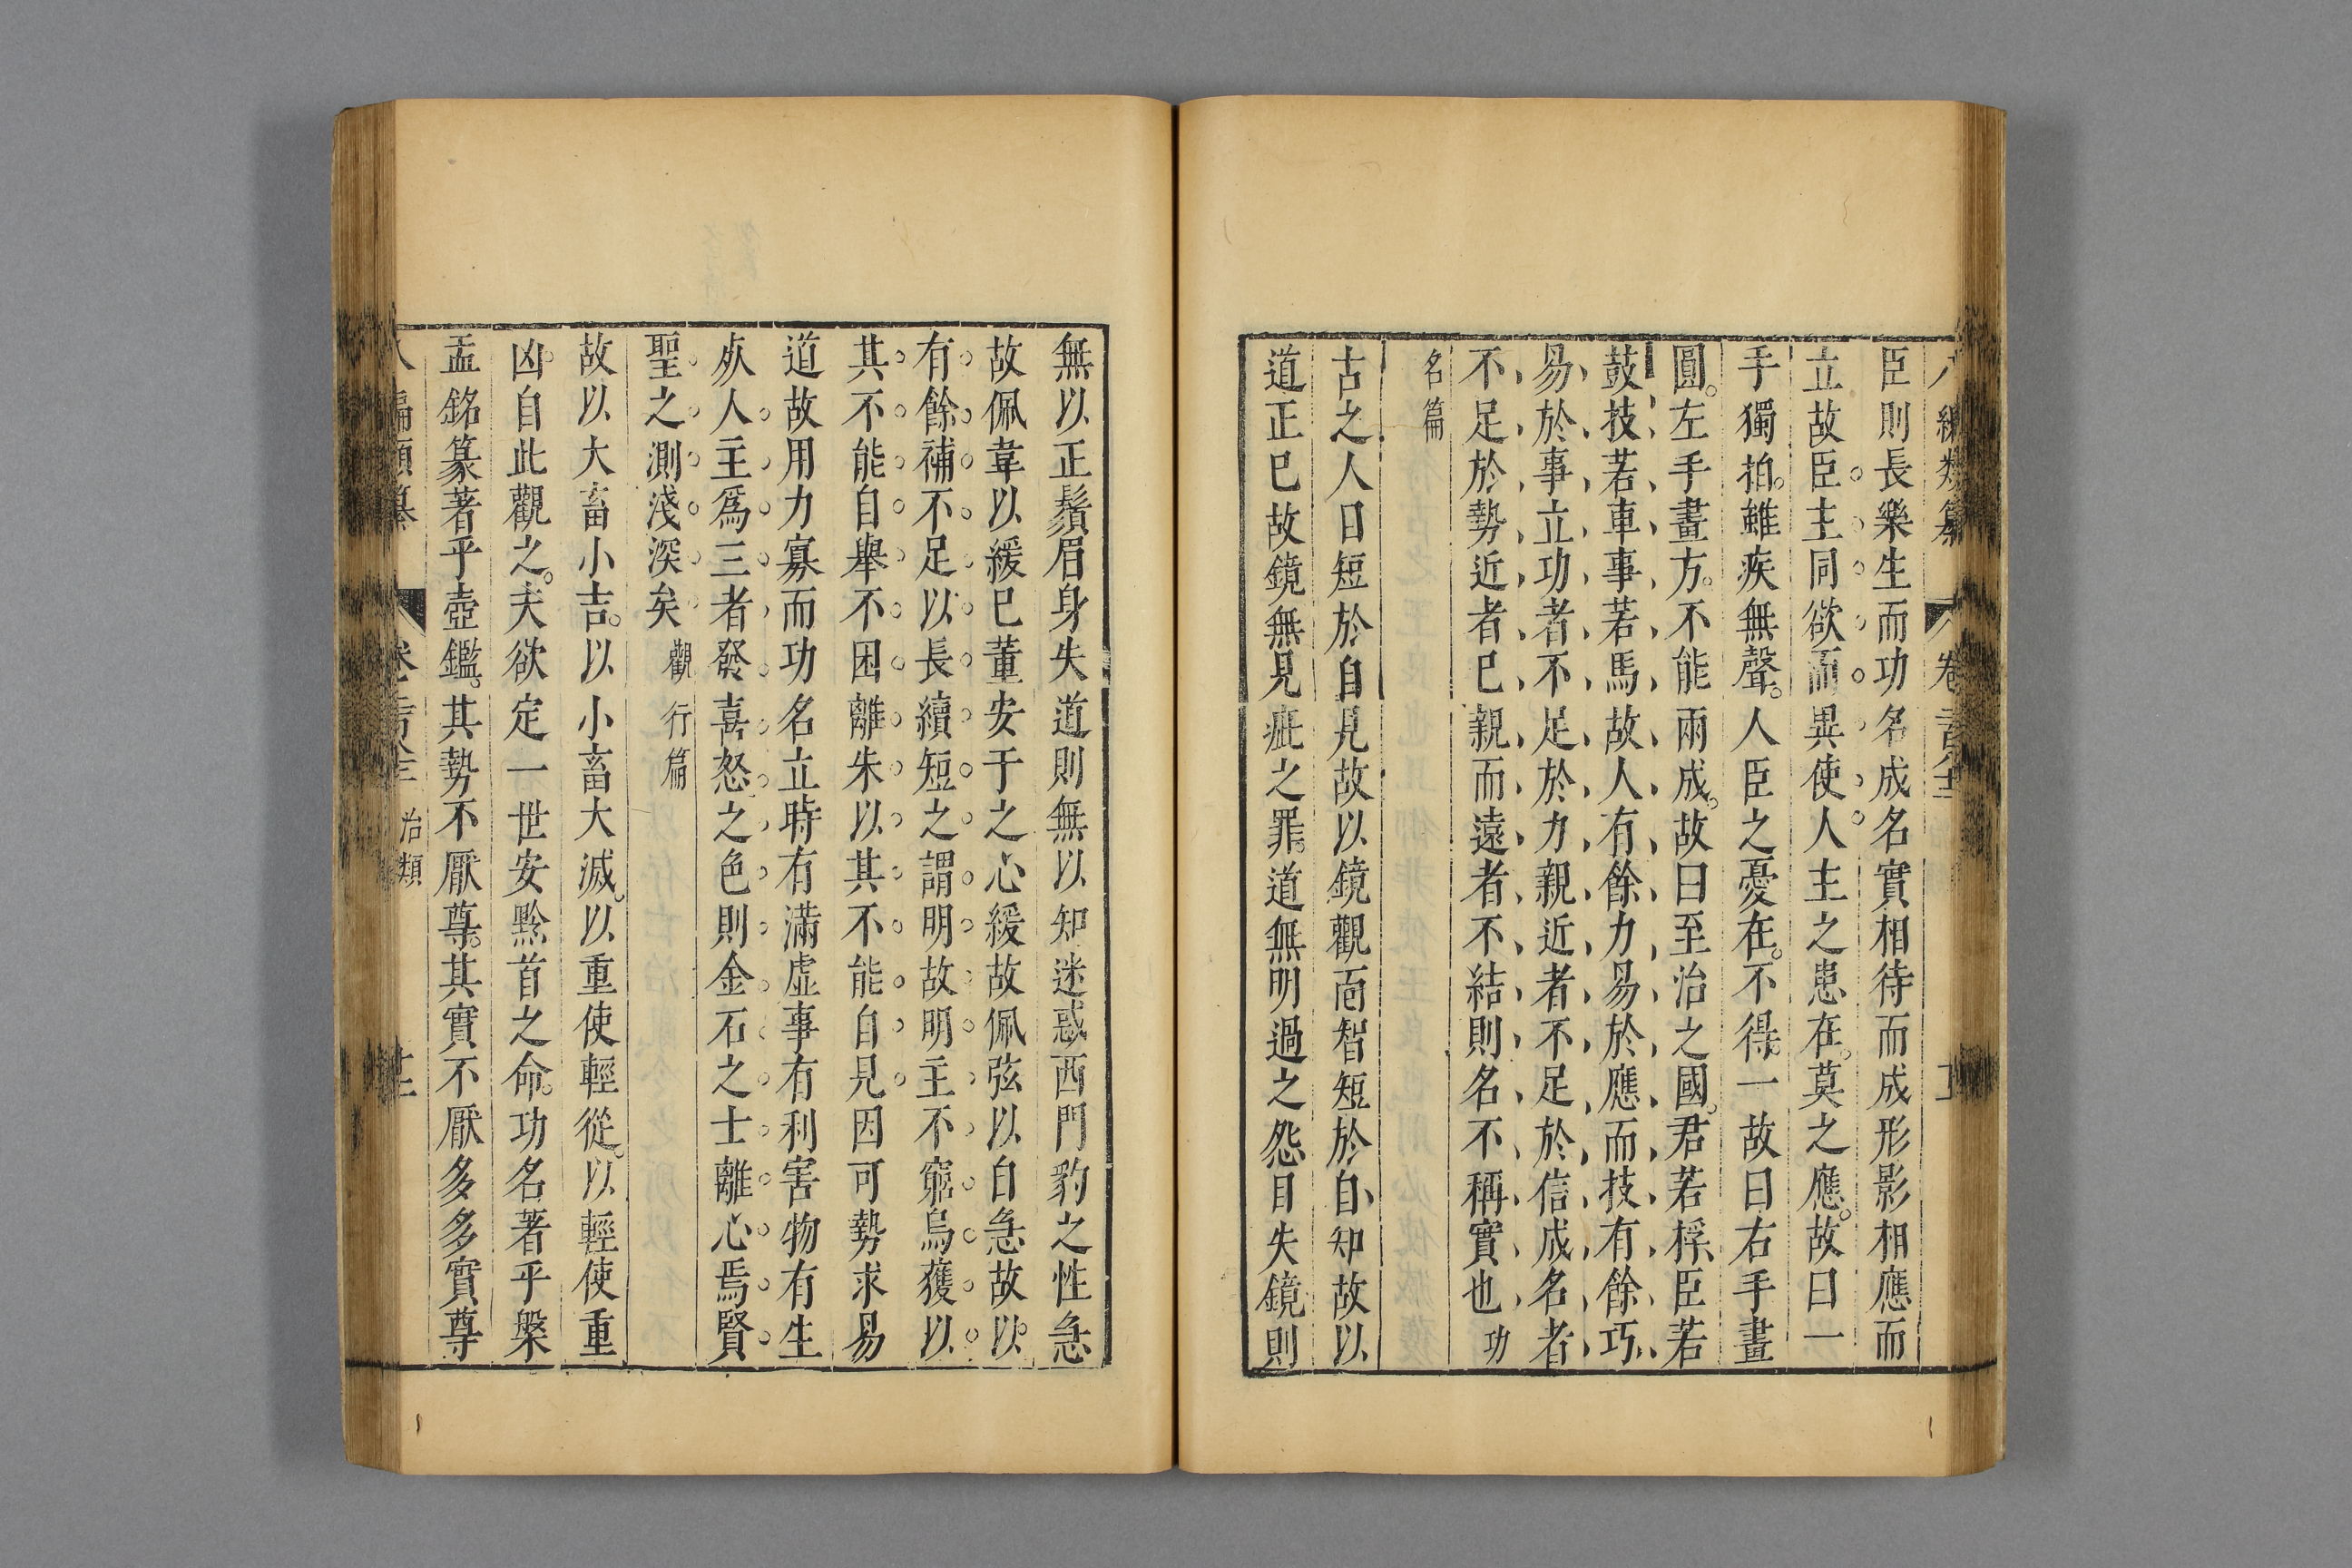 臣則長樂生而功名成名實相待而成形影相應而
立故臣主同欲而異使人主之患在莫之應故曰一
手獨拍雖疾無聲人臣之憂在不得一故曰右手畫
圓左手畫方不能兩成故曰至治之國君若桴臣若
鼓技若車事若馬故人有餘力易於應而技有餘巧
易於事立功者不足於力親近者不足於信成名者
不足於勢近者已親而遠者不結則名不稱實也功
名篇
古之人目短於自見故以鏡觀面智短於自知故以
道正已故鏡無見疵之罪道無明過之怨目失鏡則
無以正鬚眉身失道則無以知迷惑西門豹之性急
故佩韋以緩已董安于之心緩故佩弦以自急故以
有餘補不足以長續短之謂明故明主不窮烏獲以
其不能自舉不困離朱以其不能自見因可勢求易
道故用力寡而功名立時有滿虛事有利害物有生
死人主爲三者發喜怒之色則金石之士離心焉賢
聖之測淺深矣觀行篇
故以大畜小吉以小畜大滅以重使輕從以輕使重
凶自此觀之夫欲定一世安黔首之命功名著乎槃
盂銘篆著乎壺鑑其勢不厭尊其實不厭多多實尊
治類